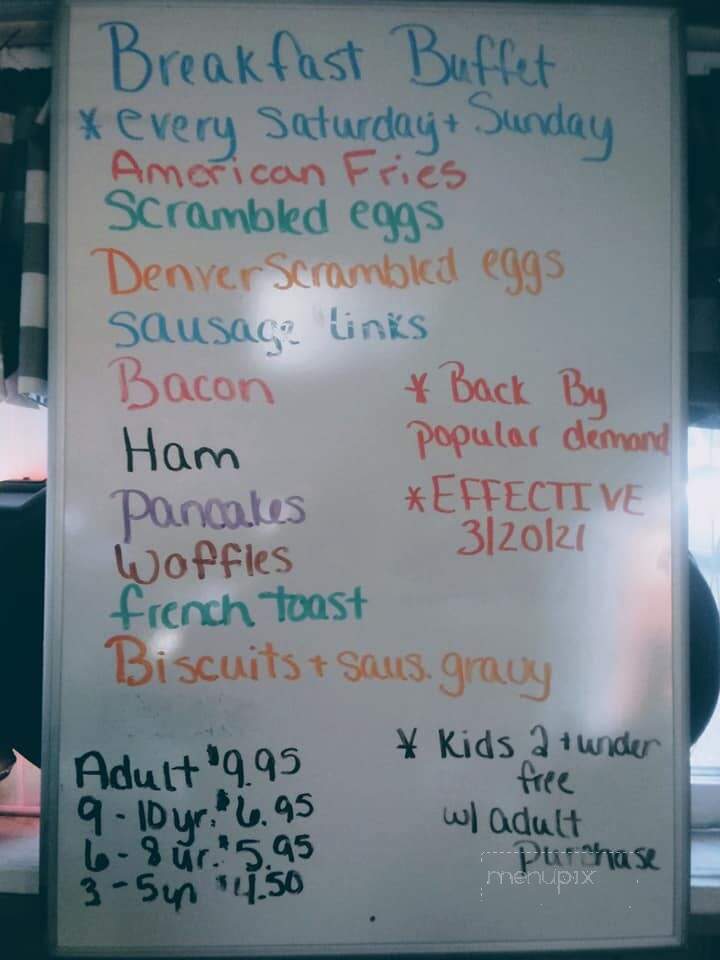 Breakfast Buffet
* every Saturday + Sunday
American Fries
Scrambled eggs
Denver Scrambled eggs
Sausage links
Bacon
* Back By
popular demand
Ham
* EFFECTIVE
3/20/21
Pancakes
Waffles
french toast
Biscuits + saus. gravy
Adult $9.95
9 - 10 yr. $6.95
6 - 8 yr. $5.95
3 - 5 yr $4.50
* Kids 2 + under
free
w/ adult
purchase
menupix